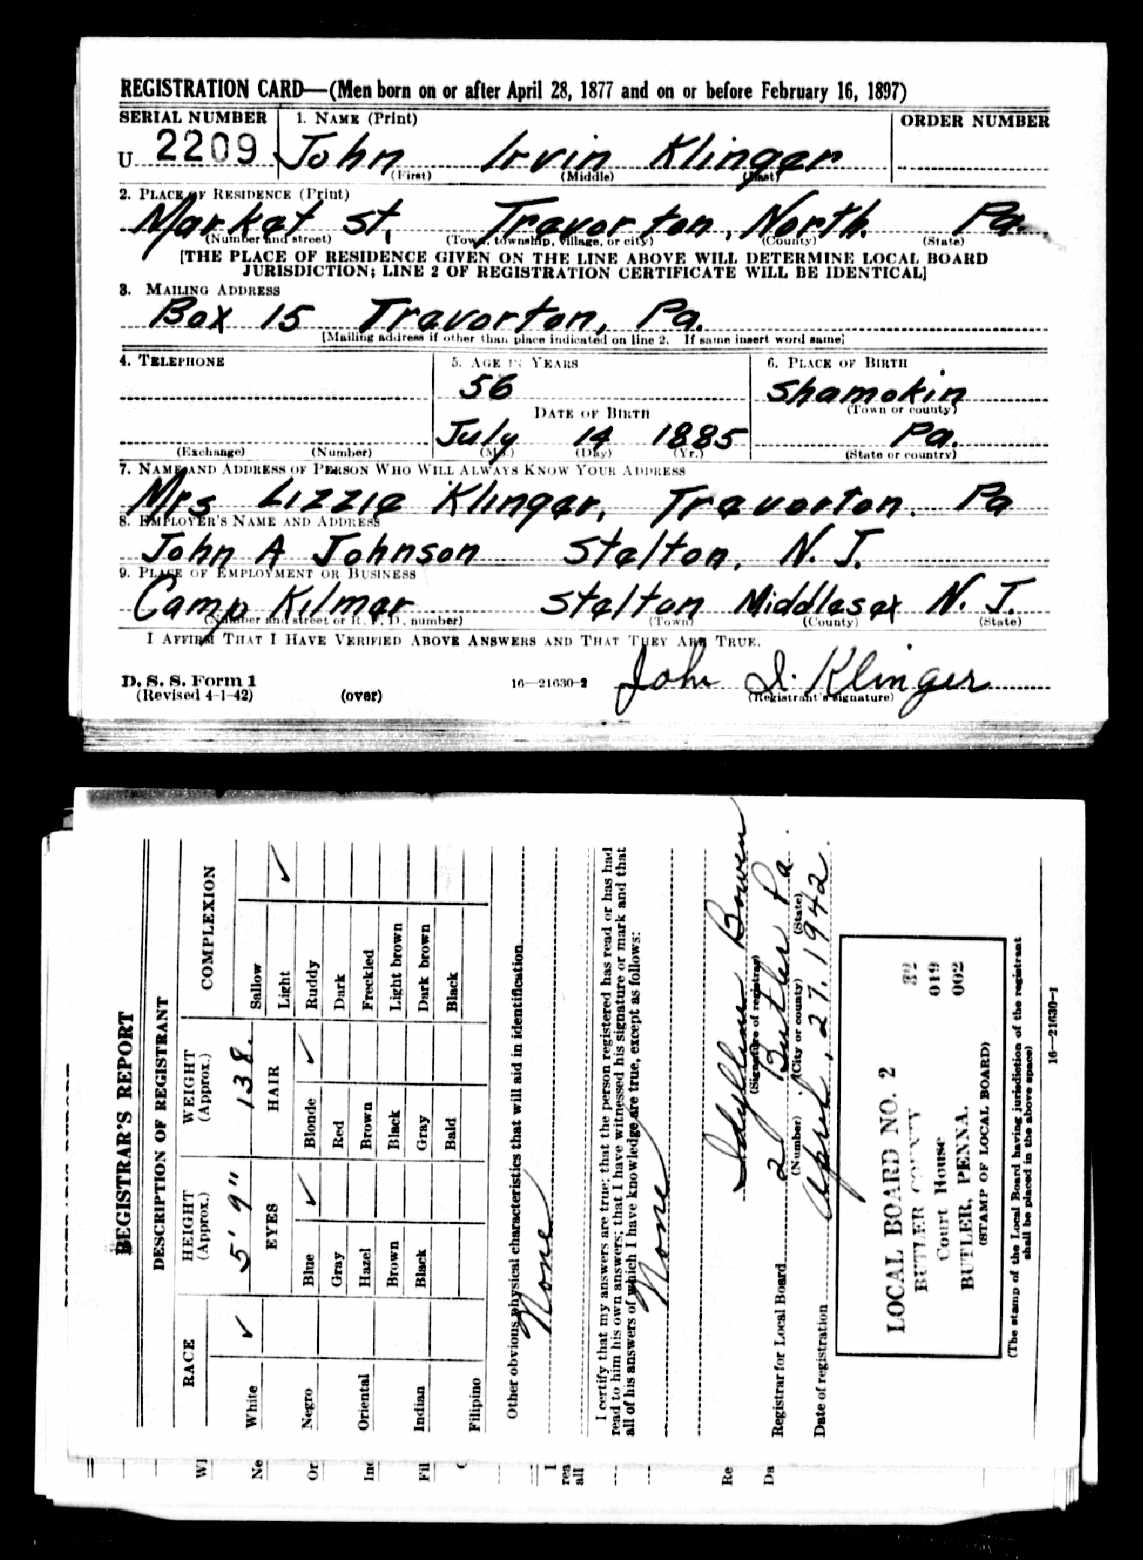 REGISTRATION CARD—(Men born on or after April 28, 1877 and on or before February 16, 1897)
SERIAL NUMBER 1. NAME (Print) ORDER NUMBER
U 2209 John Irvin Klinger
(First) (Middle) (Last)
2. PLACE OF RESIDENCE (Print)
Market St. Trevorton, North. Pa.
(Number and street) (Town, township, village, or city) (County) (State)
[THE PLACE OF RESIDENCE GIVEN ON THE LINE ABOVE WILL DETERMINE LOCAL BOARD
JURISDICTION; LINE 2 OF REGISTRATION CERTIFICATE WILL BE IDENTICAL]
3. MAILING ADDRESS
Box 15 Trevorton, Pa.
[Mailing address if other than place indicated on line 2. If same insert word same]
4. TELEPHONE 5. AGE IN YEARS 6. PLACE OF BIRTH
56 Shamokin
DATE OF BIRTH (Town or county)
July 14 1885 Pa.
(Exchange) (Number) (Mo.) (Day) (Yr.) (State or country)
7. NAME AND ADDRESS OF PERSON WHO WILL ALWAYS KNOW YOUR ADDRESS
Mrs Lizzie Klinger, Trevorton. Pa
8. EMPLOYER'S NAME AND ADDRESS
John A Johnson Stelton, N. J.
9. PLACE OF EMPLOYMENT OR BUSINESS
Camp Kilmer Stelton Middlesex N. J.
(Number and street or R. F. D. number) (Town) (County) (State)
I AFFIRM THAT I HAVE VERIFIED ABOVE ANSWERS AND THAT THEY ARE TRUE.
D. S. S. Form 1
(Revised 4-1-42) (over) 16—21630-2 John I. Klinger
(Registrant's signature)
REGISTRAR'S REPORT
DESCRIPTION OF REGISTRANT
RACE HEIGHT (Approx.) WEIGHT (Approx.) COMPLEXION
White ✓ 5' 9" 138. Sallow
EYES HAIR Light ✓
Negro Blue ✓ Blonde ✓ Ruddy
Gray Red Dark
Oriental Hazel Brown Freckled
Brown Black Light brown
Indian Black Gray Dark brown
Filipino Bald Black
Other obvious physical characteristics that will aid in identification
None
I certify that my answers are true; that the person registered has read or has had
read to him his own answers; that I have witnessed his signature or mark and that
all of his answers of which I have knowledge are true, except as follows:
None
Idyllene Bowen
(Signature of registrar)
Registrar for Local Board 2 Butler Pa.
(Number) (City or county) (State)
Date of registration April, 27, 1942.
LOCAL BOARD NO. 2 32
BUTLER COUNTY 019
Court House 002
BUTLER, PENNA.
(STAMP OF LOCAL BOARD)
(The stamp of the Local Board having jurisdiction of the registrant
shall be placed in the above space)
16—21630-1